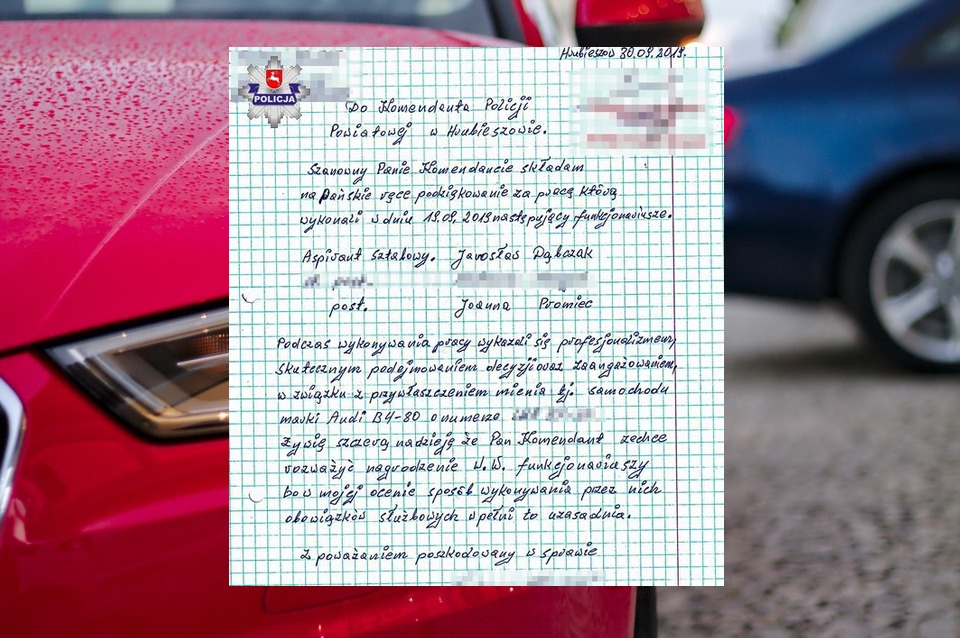 Hrubieszów 30.09.2019.
POLICJA
Do Komendanta Policji
Powiatowej w Hrubieszowie.
Szanowny Panie Komendancie składam
na Pańskie ręce podziękowanie za pracę którą
wykonali w dniu 19.09.2019 następujący funkcjonariusze.
Aspirant sztabowy. Jarosław Dąbczak
post. Joanna Promiec
Podczas wykonywania pracy wykazali się profesjonalizmem,
skutecznym podejmowaniem decyzji oraz zaangażowaniem,
w związku z przywłaszczeniem mienia tj. samochodu
marki Audi B4-80 o numerze
Żywię szczerą nadzieję że Pan Komendant zechce
rozważyć nagrodzenie W.W. funkcjonariuszy
bo w mojej ocenie sposób wykonywania przez nich
obowiązków służbowych w pełni to uzasadnia.
Z poważaniem poszkodowany w sprawie